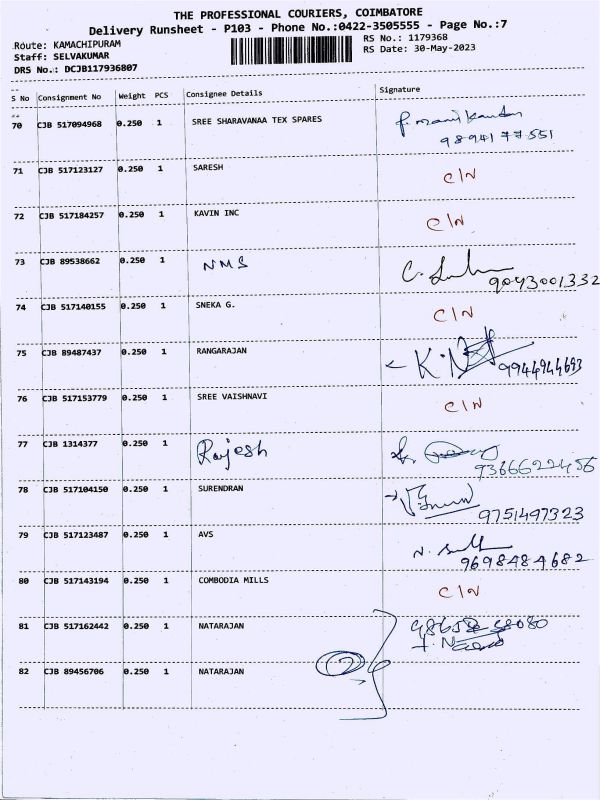 THE PROFESSIONAL COURIERS, COIMBATORE
Delivery Runsheet - P103 - Phone No.:0422-3505555 - Page No.:7
Route: KAMACHIPURAM RS No.: 1179368
Staff: SELVAKUMAR RS Date: 30-May-2023
DRS No.: DCJB117936807
S No Consignment No Weight PCS Consignee Details Signature
70 CJB 517094968 0.250 1 SREE SHARAVANAA TEX SPARES
9894177551
71 CJB 517123127 0.250 1 SARESH C/N
72 CJB 517184257 0.250 1 KAVIN INC C/N
73 CJB 89538662 0.250 1 NMS
9043001332
74 CJB 517140155 0.250 1 SNEKA G. C/N
75 CJB 89487437 0.250 1 RANGARAJAN
9944944693
76 CJB 517153779 0.250 1 SREE VAISHNAVI C/N
77 CJB 1314377 0.250 1 Rajesh
9366622456
78 CJB 517104150 0.250 1 SURENDRAN
9751497323
79 CJB 517123487 0.250 1 AVS
9698484682
80 CJB 517143194 0.250 1 COMBODIA MILLS C/N
81 CJB 517162442 0.250 1 NATARAJAN
82 CJB 89456706 0.250 1 NATARAJAN 2